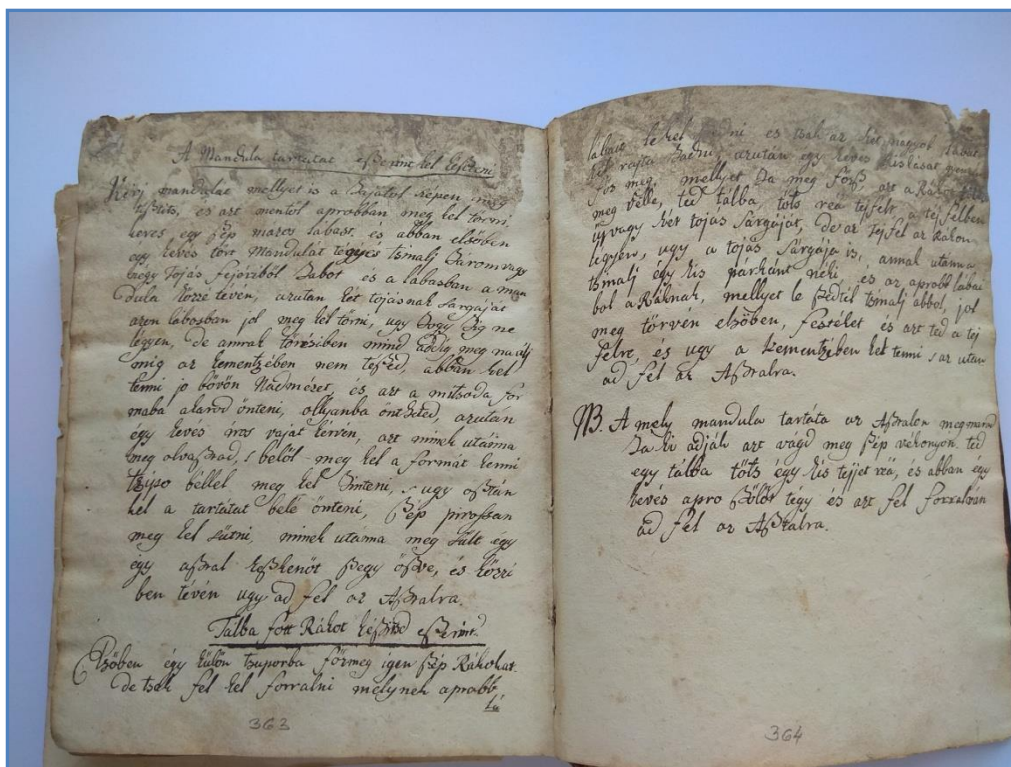 A Mandula tartutat eßerint kel késziteni
Verj mandulat mellyet is a Hajátol szépen meg
tißtits, es azt mentöl aprobban meg kel törni
keves egy ßép mazos lábast, és abban elsöben
egy kevés tört Mandulát tégy és tsinalj Három vagy
négy Tojás fejeriböl Habot és a lábasban a man
dula közzé tévén, azutan két tojásnak sárgáját
azon lábosban jol meg kel törni, ugy hogy hig ne
légyen, de annak törésiben mind addig meg
mig az kementzében nem teßed, abban kel
tenni jo bövön Nádmézet, és azt a mitsoda for
maba akarod önteni, ollyanba öntheted, azután
égy kevés iros vajat kérvén, azt minek utánna
meg olvaßtad, s belöl meg kel a formát kenni
tzipo béllel meg kel hinteni, s ugy oßtán
kel a tartátat belé önteni, ßép pirossan
meg kel sütni, minek utánna meg sült egy
égy aßtal keßkenöt ßegy ößve, és közzi
ben tévén ugy ad fel az Aßtalra.
Talba fött Rákot kéßitsd eßerint.
Elsöben égy külön tsuporba föz meg igen ßép Rákokat.
de tsak fel kel forralni melynek aprobb
lá
363
lábait le kel ßedni és tsak az két nagyob lábát
rajta hadni, azután egy kevés
föz meg, mellyet ha meg föß, azt a Rákot
meg véle, ted tálba, töts reá tejfelt, a tejfelben
üß vagy két tojas Sárgáját, de az tejfel az Rákon
legyen, ugy a tojás sárgája is, annak utanna
tsinalj egy kis párkánt néki, és az aprobb lábai
bol a Ráknak, mellyet le ßedtél tsinalj abbol, jol
meg törvén elsöben, festéket és azt ted a tej
felre, és ugy a kementzében kel tenni s az után
ad fel az Aßtalra.
NB. A mely mandula tartáta az Aßtalon megmarad
Ha ki adják azt vagd meg ßép vékonyon, ted
egy tálba töts égy kis tejet reá, és abban égy
kevés apro ßölöt tegy és azt fel forralván
ad fel az Aßtalra.
364